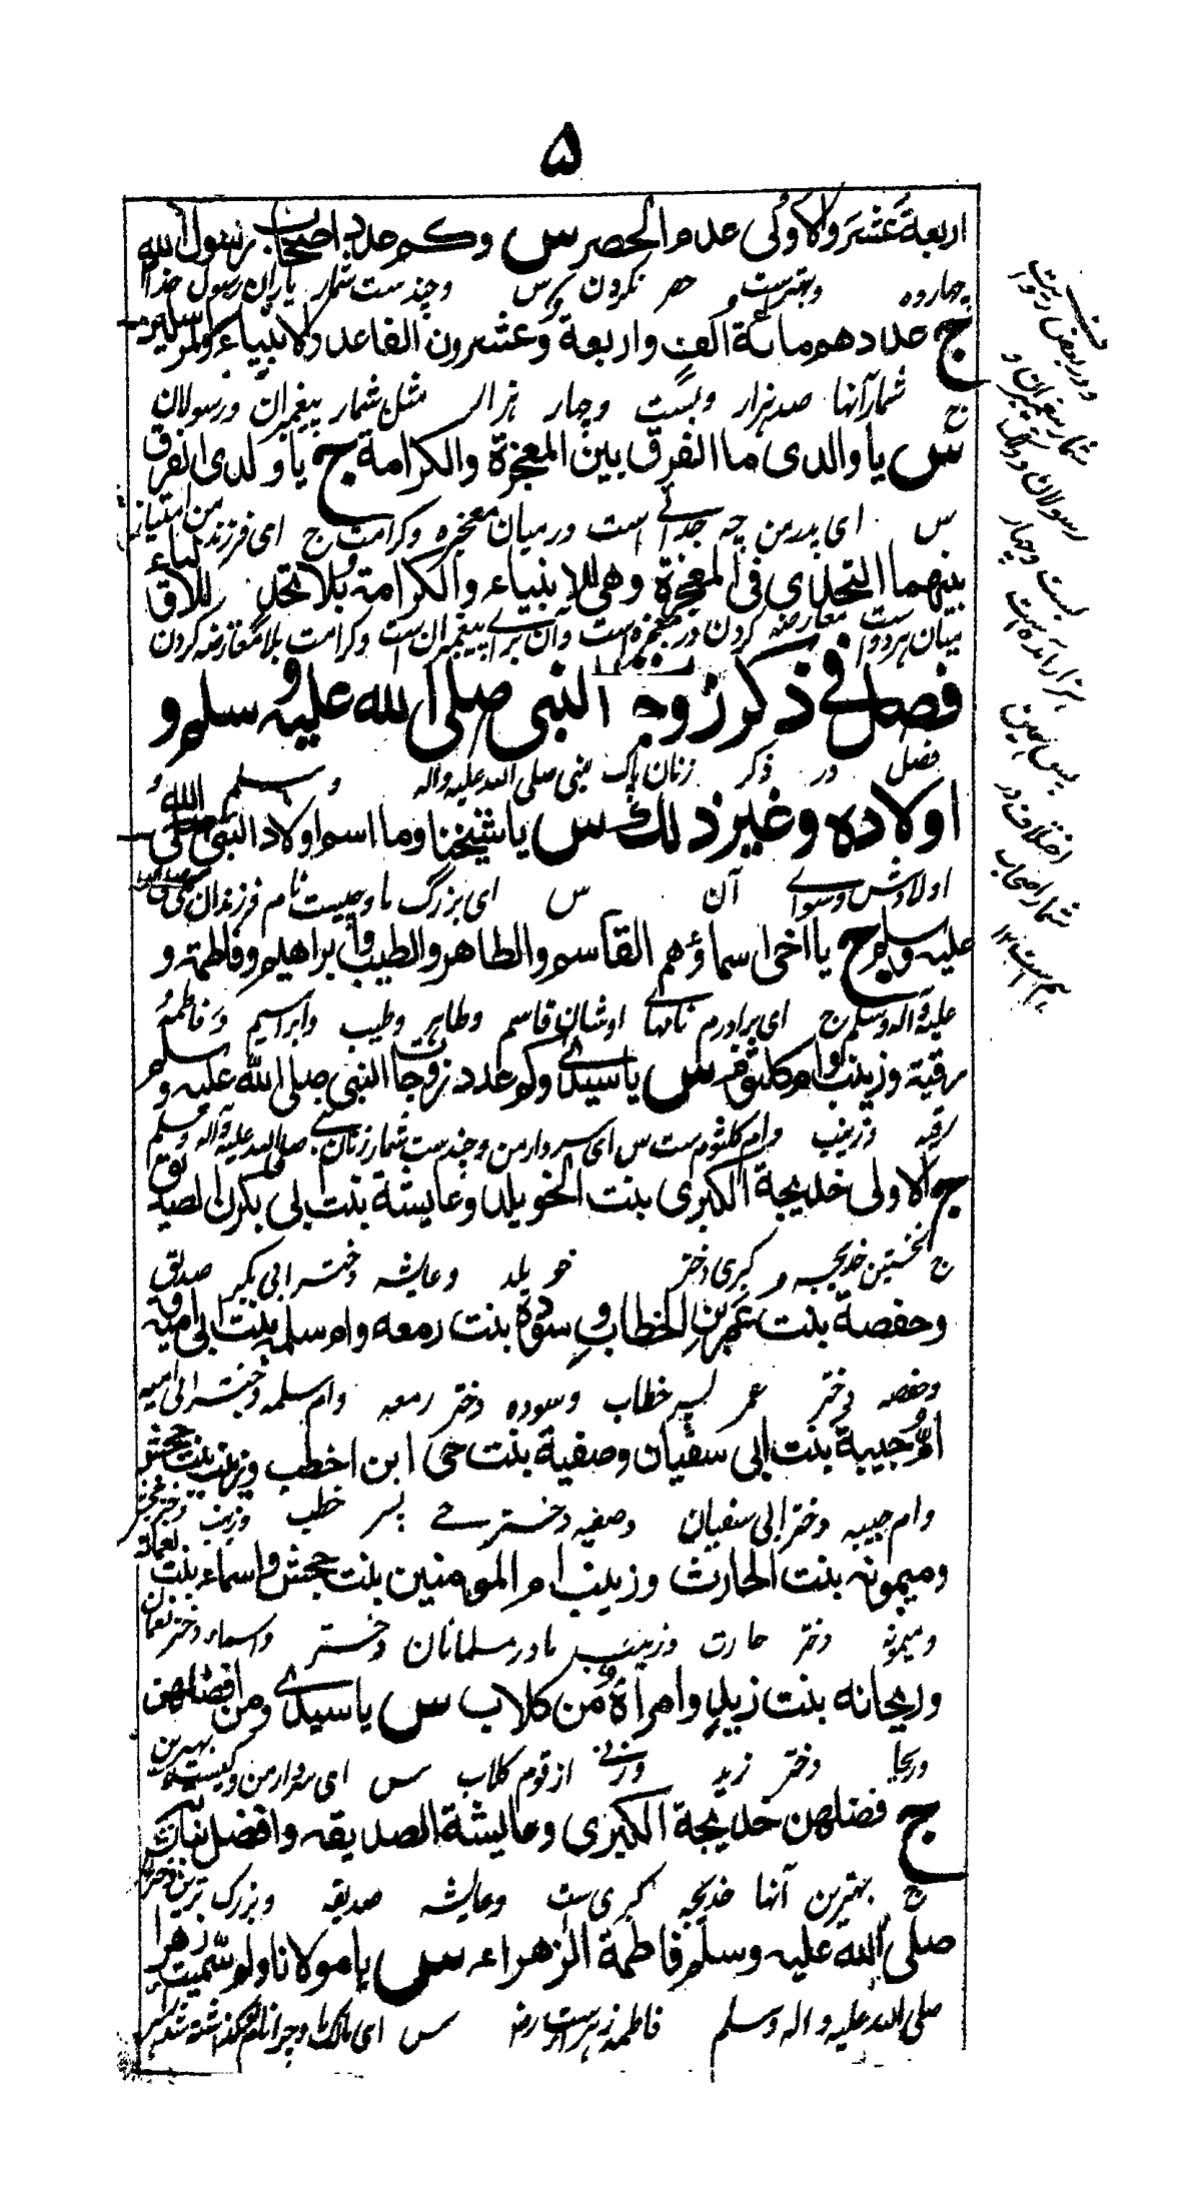 ۵
اربعة عشر والاولى عدم الحصر س وكم عدد اصحاب رسول الله
چهارده وبهترست حصر نکردن س وچندست شمار یاران رسول خدا
ج عددهم مائة الف واربعة وعشرون الفا عدد الانبياء والمرسلين
ج شمار آنها صد هزار وبست وچهار هزار مثل شمار پیغمبران ورسولان
س يا والدى ما الفرق بين المعجزة والكرامة ج يا ولدى الفرق
س ای پدر من چه جدائی است درمیان معجزه وکرامت ج ای فرزند من امتیاز
بينهما التحدى فى المعجزة وهى للانبياء والكرامة بلا تحد
میان هر دو معارضه کردن در معجزه است وآن برای پیغمبران است وکرامت بلا معارضه کردن
فصل فى ذكر زوجات النبى صلى الله عليه وسلم و
فصل در ذکر زنان پاک نبی صلی الله علیه واله وسلم و
اولاده وغير ذلك س يا شيخنا وما اسم اولاد النبى صلى الله
اولادش وسوای آن س ای بزرگ ما وچیست نام فرزندان نبی
عليه وسلم ج يا اخى اسماؤهم القاسم والطاهر والطيب وابراهيم وفاطمة و
علیه واله وسلم ج ای برادرم نامهای اوشان قاسم وطاهر وطیب وابراهیم وفاطمه
رقية وزينب وام كلثوم س يا سيدى وكم عدد زوجات النبى صلى الله عليه وسلم
رقیه وزینب وام کلثوم ست س ای سردار من وچندست شمار زنان نبی صلی الله علیه واله وسلم
ج الاولى خديجة الكبرى بنت الخويلد وعايشة بنت ابى بكرن الصديق
ج نخستین خدیجه کبری دختر خویلد وعایشه دختر ابی بکر صدیق
وحفصة بنت عمر بن الخطاب وسودة بنت زمعه وام سلمه بنت ابى اميه
وحفصه دختر عمر پسر خطاب وسوده دختر زمعه وام سلمه دختر ابی امیه
وام حبيبة بنت ابى سفيان وصفية بنت حى ابن اخطب وزينب بنت جحش
وام حبیبه دختر ابی سفیان وصفیه دختر حی پسر خطب وزینب دختر جحش
وميمونه بنت الحارث وزينب ام المومنين بنت جحش واسماء بنت نعمان
ومیمونه دختر حارث وزینب مادر مسلمانان دختر واسماء دختر نعمان
وريحانه بنت زيد وامرأة من كلاب س يا سيدى ومن افضلهن
وریحا دختر زید وزنی از قوم کلاب س ای سردار من وکیست بهترین
ج فضلهن خديجة الكبرى وعايشة الصديقه وافضل بناته
ج بهترین آنها خدیجه کبری ست وعایشه صدیقه وبزرگ ترین
صلى الله عليه وسلم فاطمة الزهراء س يا مولانا ولم سميت زهرا
صلی الله علیه واله وسلم فاطمه زهراست س ای مالک ما وچرا نام
ودر بعض روایت
شمار پیغمبران و
رسولان
بست وچهار
هزار آمده است
پس همین
اختلاف در
شمار اصحاب
هم است ۱۲